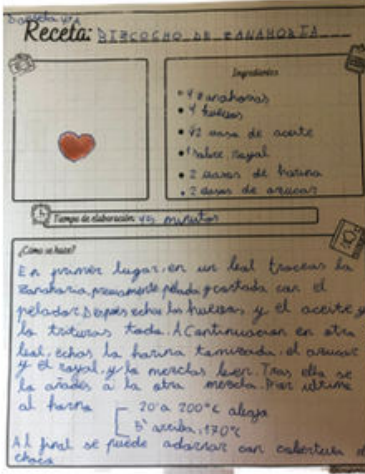 Receta: BIZCOCHO DE ZANAHORIA
Ingredientes
• 4 zanahorias
• 4 huevos
• 1/2 vaso de aceite
• 1 sobre royal
• 2 vasos de harina
• 2 vasos de azucar
Tiempo de elaboración: 45 minutos
¿Cómo se hace?
En primer lugar, en un bol troceas la
zanahoria, previamente pelada y cortada con el
pelador. Después echas los huevos y el aceite y
lo trituras todo. A Continuacion en otro
bol, echas la harina tamizada, el azucar
y el royal, y lo mezclas bien. Tras ello se
lo añades a la otra mezcla. Por ultimo
al horno
20' a 200°C abajo
5' arriba, 170°C
Al final se puede adornar con cobertura d
choco